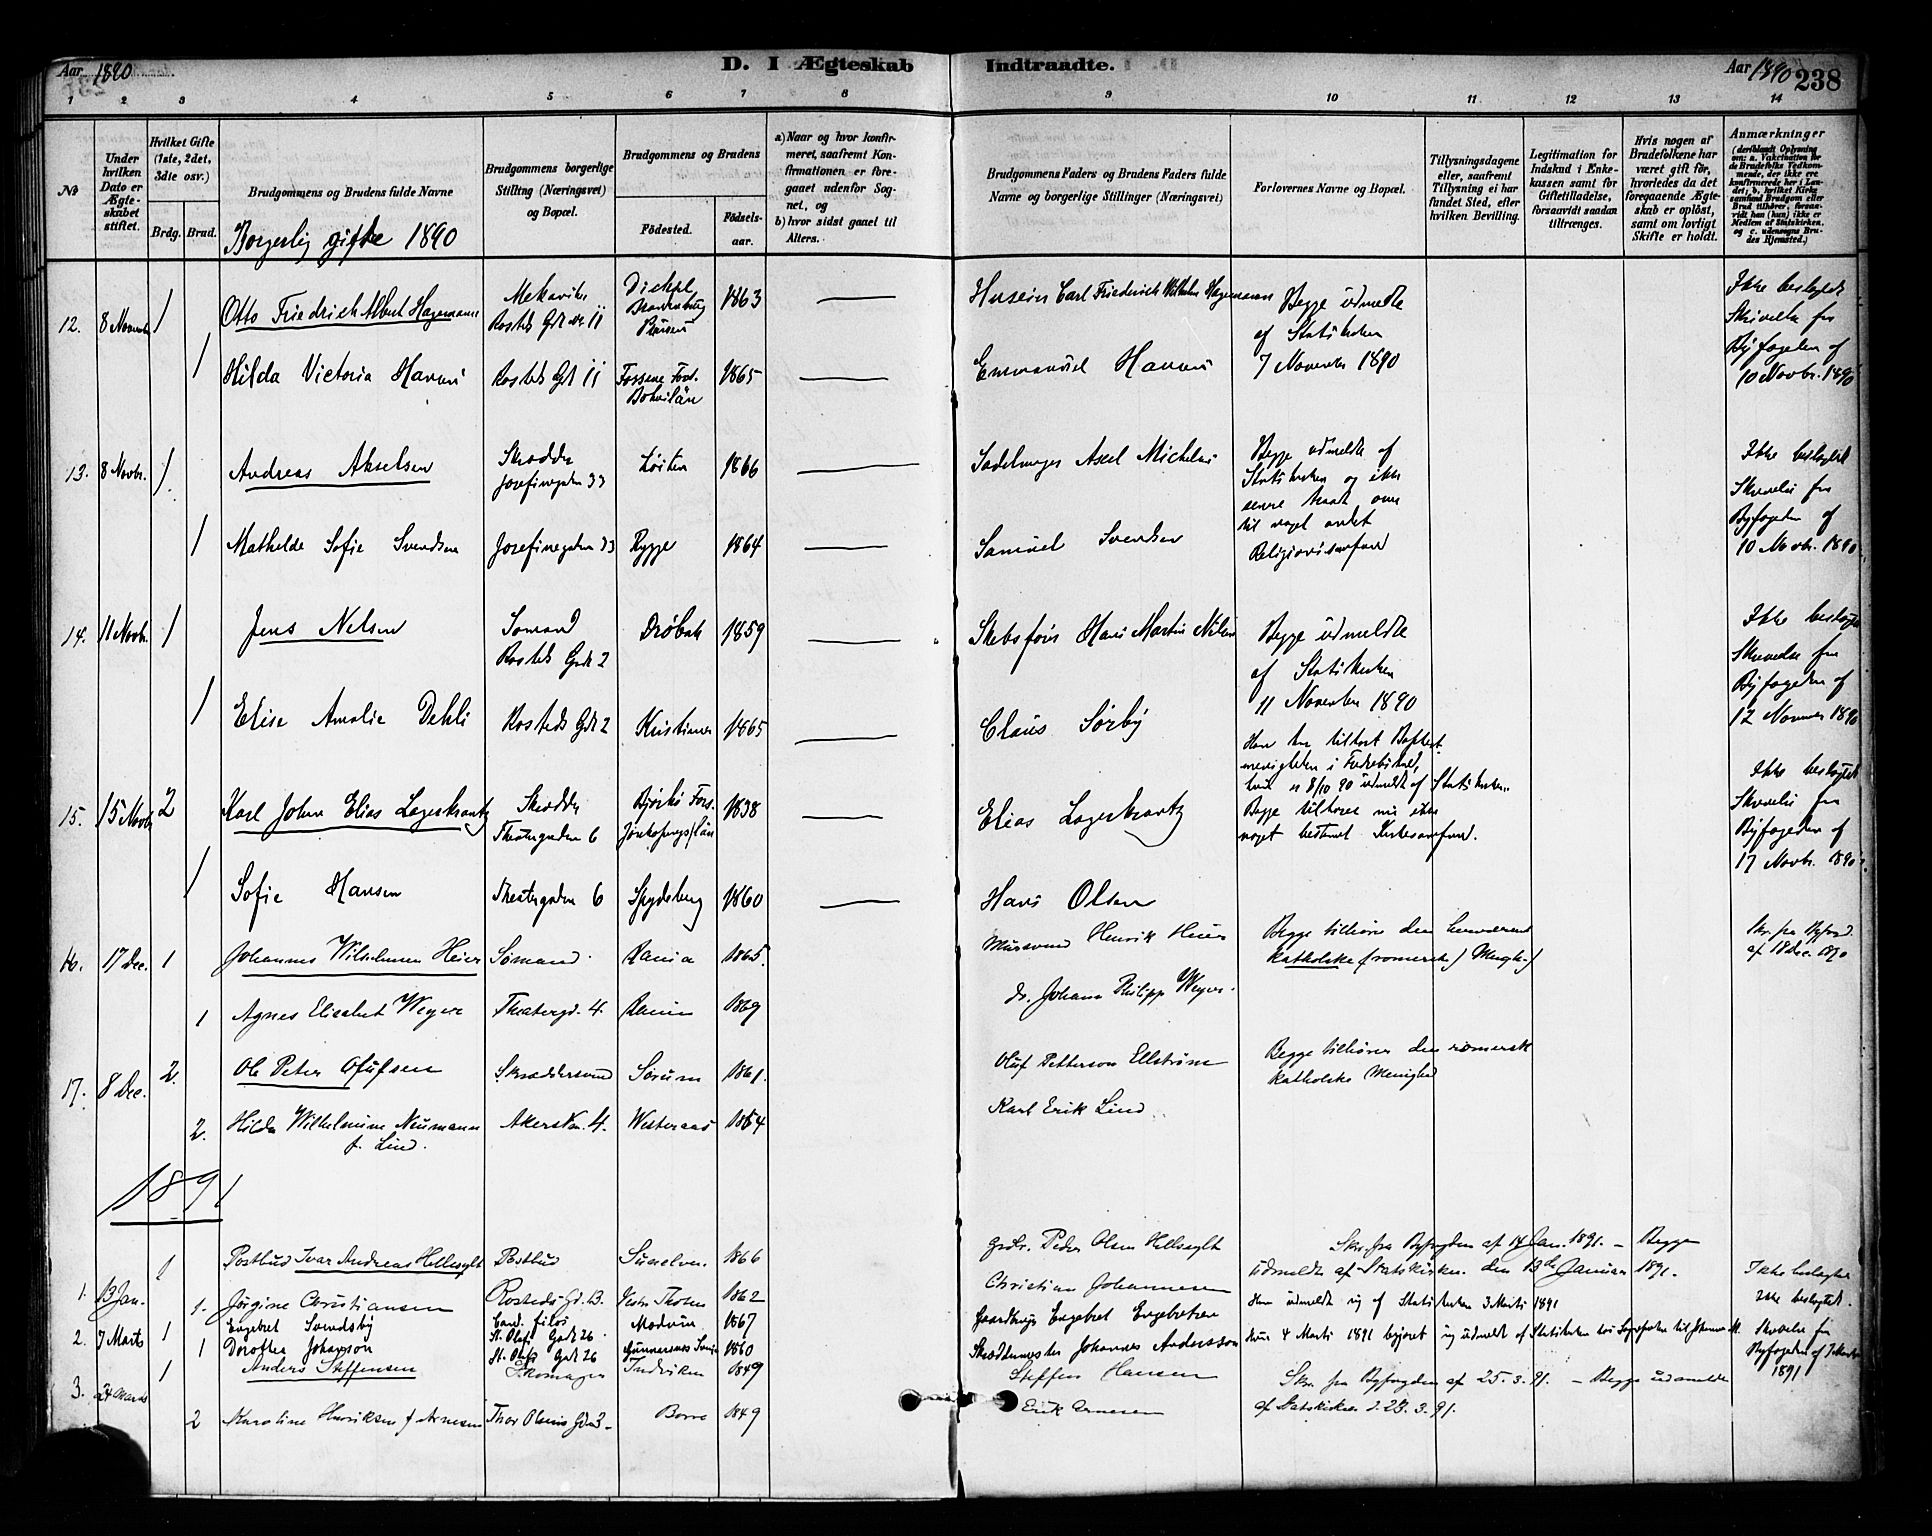 Aar 1890
D. I Ægteskab Indtraadte.
Aar 1890 238
1 2 3 4 5 6 7 8 9 10 11 12 13 14
No
Under hvilken Dato er Ægteskabet stiftet.
Hvilket Gifte (1ste, 2det, 3die osv.)
Brdg. Brud.
Brudgommens og Brudens fulde Navne
Borgerlig gifte 1890
Brudgommens borgerlige Stilling (Næringsvei) og Bopæl.
Brudgommens og Brudens
Födested.
Födselsaar.
a) Naar og hvor konfirmeret, saafremt Konfirmationen er foregaaet udenfor Sognet, og
b) hvor sidst gaaet til Alters.
Brudgommens Faders og Brudens Faders fulde Navne og borgerlige Stillinger (Næringsvei)
Forlovernes Navne og Bopæl.
Tillysningsdagene eller, saafremt Tillysning ei har fundet Sted, efter hvilken Bevilling.
Legitimation for Indskud i Enkekassen samt for Giftetilladelse, forsaavidt saadan tiltrænges.
Hvis nogen af Brudefolkene har været gift för, hvorledes da det foregaaende Ægteskab er oplöst, samt om lovligt Skifte er holdt.
Anmærkninger (deriblandt Oplysning om: a. Vakcination for de Brudefolks Vedkommende, der ikke ere konfirmerede her i Landet; b. hvilket Kirkesamfund Brudgom eller Brud tilhörer, forsaavidt han (hun) ikke er Medlem af Statskirken, og c. udensogns Brudes Hjemsted.)
12. 8 Novembr 1 Otto Friedrich Albert Hagemann Mekaniker Rosteds Gd. No 11 1863 Carl Friederich Wilhelm Hagemann
Begge udmeldte af Statskirken 7 November 1890
Ikke beslegtet Skrivelse fra Byfogden af 10 Novbr. 1890
1 Hilda Victoria Rosteds Gd 11 1865 Emmanuel
13. 8 Novbr. 1 Andreas Akselsen Skrædder Josefinegaden 33 Löiten 1866 Sadelmager Axel
Begge udmeldte af Statskirken og ikke senere traadt over til noget andet Religionssamfund
Ikke beslegtet Skrivelse fra Byfogden af 10 Novbr. 1890
1 Mathilde Sofie Svendsen Josefinegaden 33 Rygge 1864 Samuel Svendsen
14. 11 Novbr. 1 Jens Nelsen Sömand Rosteds Gade 2 Dröbak 1859 Hans Martin
Begge udmeldte af Statskirken 11 November 1890
Ikke beslegtet Skrivelse fra Byfogden af 12 November 1890
1 Elise Amalie Dehli Rosteds Gd 2 Kristiania 1865 Claus Sörby
15. 15 Novbr 2 Karl Johan Elias Lagerkrantz Skrædder Theatergaden 6 1838 Elias Lagerkrantz
Han har tilhört i Fredrikshald, hun er 8/10 90 udmeldt af Statskirken.
Begge tilhörer nu ikke noget bestemt Kirkesamfund.
Ikke beslegtet Skrivelse fra Byfogden af 17 Novbr. 1890
1 Sofie Hansen Theatergaden 6 Spydeberg 1860 Hans Olsen
16. 17 Dec. 1 Johannes Wilhelmsen Heier Sömand. 1865. Mursvend Henrik Heier
Begge tilhörer den herværende katholske (romerske) Menighed
Skr. fra Byfogd. af 18 Dec. 1890
1 Agnes Elisabet Weyer Theatergd. 4. 1869 Johann Philipp Weyer.
17. 8 Dec. 2. Ole Peter Olufsen Skræddersvend Sörum 1861. Oluf Petterson Ellström
Begge tilhörer den romersk katholske Menighed
2. Hilda Wilhelmine Neumann f. Lind. Akersvn. 4. Westeraas 1854 Karl Erik Lind
1891
1. 13 Jan. 1 Postbud Ivar Andreas Hellesylt Postbud Sunelven. 1866 Peder Olsen Hellesylt
Skr. fra Byfogden af 14 Jan. 1891. – Begge udmeldte af Statskirken. den 13de Januar 1891.
Ikke beslegtet
1. Jörgine Christiansen Rosteds Gd. 13. 1862 Christian Johannesen
2. 7 Marts 1 Engebret Svendsby Cand. filos St. Olafs Gade 26. 1867 Gaardbruger Engebret Engebretsen
Han udmeldt sig af Statskirken 3 Marts 1891
Ikke beslegtet.
1 Dorothea Johansson St. Olafs Gade 26 1860 Skræddermester Johannes Andersson
Hun 4 Marts 1891 udmeldt af Statskirken
Skrivelse fra Byfogden af 1891
3. 24 Marts 1 Anders Steffensen Skomager Indviken 1849 Steffen Hansen
Skr. fra Byfogden af 25.3.91. – Begge udmeldte af Statskirken d. 23.3.91.
2 Karoline Henriksen f. Arnesen Thor Olsens Gd. 3 Borre 1849 Erik Arnesen